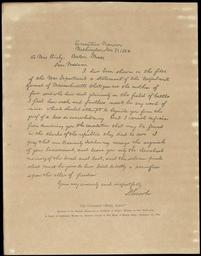 Executive Mansion
Washington, Nov. 21, 1864
To Mrs Bixby, Boston, Mass.
Dear Madam.
I have been shown in the files
of the War Department a statement of the Adjutant
General of Massachusetts that you are the mother of
five sons who have died gloriously on the field of battle
I feel how weak and fruitless must be any word of
mine which should attempt to beguile you from the
grief of a loss so overwhelming. But I cannot refrain
from tendering you the consolation that may be found
in the thanks of the republic they died to save. I
pray that our Heavenly Father may assuage the anguish
of your bereavement, and leave you only the cherished
memory of the loved and lost, and the solemn pride
that must be yours to have laid so costly a sacrifice
upon the altar of freedom
Yours very sincerely and respectfully,
A. Lincoln